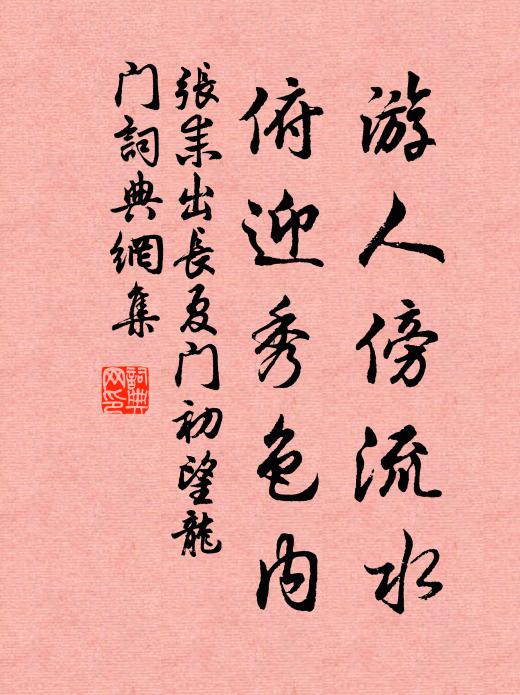 游人傍流水
俯迎秀色内
張耒出長夏门初望龍
门詞典網集
詞典
网印